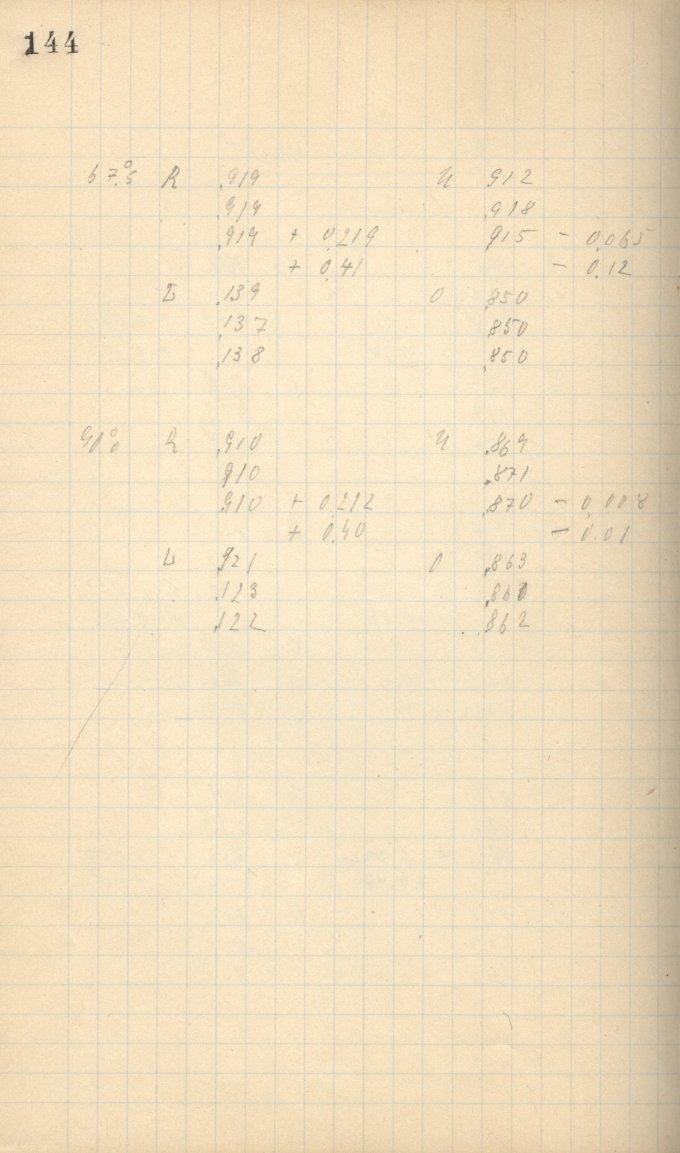 144
67°.5 R ,919 U 912
,919 ,918
,919 + 0,219 915 - 0,065
+ 0,41 - 0,12
L ,139 O ,850
,137 ,850
,138 ,850
90°.0 R ,910 U ,869
,910 ,871
,910 + 0,212 ,870 - 0,008
+ 0,40 - 0,01
L ,121 O ,863
,123 ,860
,122 ,862